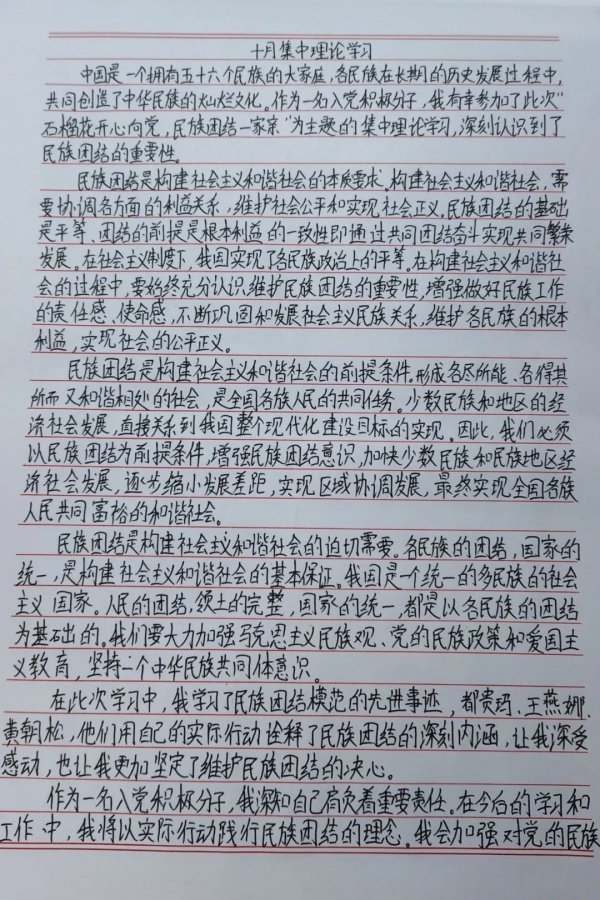 十月集中理论学习
中国是一个拥有五十六个民族的大家庭,各民族在长期的历史发展过程中,
共同创造了中华民族的灿烂文化。作为一名入党积极分子,我有幸参加了此次“
石榴花开心向党,民族团结一家亲”为主题的集中理论学习,深刻认识到了
民族团结的重要性。
民族团结是构建社会主义和谐社会的本质要求。构建社会主义和谐社会,需
要协调各方面的利益关系,维护社会公平和实现社会正义。民族团结的基础
是平等、团结的前提是根本利益的一致性即通过共同团结奋斗实现共同繁荣
发展。在社会主义制度下,我国实现了各民族政治上的平等。在构建社会主义和谐社
会的过程中,要始终充分认识维护民族团结的重要性,增强做好民族工作
的责任感、使命感,不断巩固和发展社会主义民族关系,维护各民族的根本
利益,实现社会的公平正义。
民族团结是构建社会主义和谐社会的前提条件。形成各尽所能、各得其
所而又和谐相处的社会,是全国各族人民的共同任务。少数民族和地区的经
济社会发展,直接关系到我国整个现代化建设目标的实现。因此,我们必须
以民族团结为前提条件,增强民族团结意识,加快少数民族和民族地区经
济社会发展,逐步缩小发展差距,实现区域协调发展,最终实现全国各族
人民共同富裕的和谐社会。
民族团结是构建社会主义和谐社会的迫切需要。各民族的团结,国家的
统一,是构建社会主义和谐社会的基本保证。我国是个统一的多民族的社会
主义国家。人民的团结,领土的完整,国家的统一,都是以各民族的团结
为基础的。我们要大力加强马克思主义民族观、党的民族政策和爱国主
义教育,坚持一个中华民族共同体意识。
在此次学习中,我学习了民族团结模范的先进事迹,都贵玛、王燕娜、
黄朝松,他们用自己的实际行动诠释了民族团结的深刻内涵,让我深受
感动,也让我更加坚定了维护民族团结的决心。
作为一名入党积极分子,我深知自己肩负着重要责任。在今后的学习和
工作中,我将以实际行动践行民族团结的理念。我会加强对党的民族